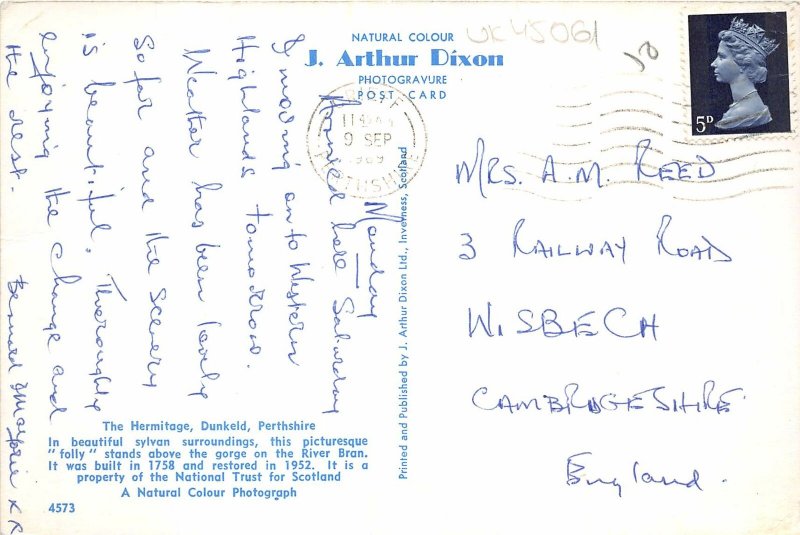 NATURAL COLOUR
J. Arthur Dixon
PHOTOGRAVURE
POST CARD
UK45061
10
5D
11 AM
9 SEP
1969
PERTHSHIRE
Monday
Arrived here Saturday
& moving on to Western
Highlands tomorrow.
Weather has been lovely
so far and the scenery
is beautiful. Thoroughly
enjoying the change and
the rest.
Bernard & Marjorie X R
MRS. A.M. REED
3 RAILWAY ROAD
WISBECH
CAMBRIDGESHIRE
England.
Printed and Published by J. Arthur Dixon Ltd., Inverness, Scotland
The Hermitage, Dunkeld, Perthshire
In beautiful sylvan surroundings, this picturesque
"folly" stands above the gorge on the River Bran.
It was built in 1758 and restored in 1952. It is a
property of the National Trust for Scotland
A Natural Colour Photograph
4573